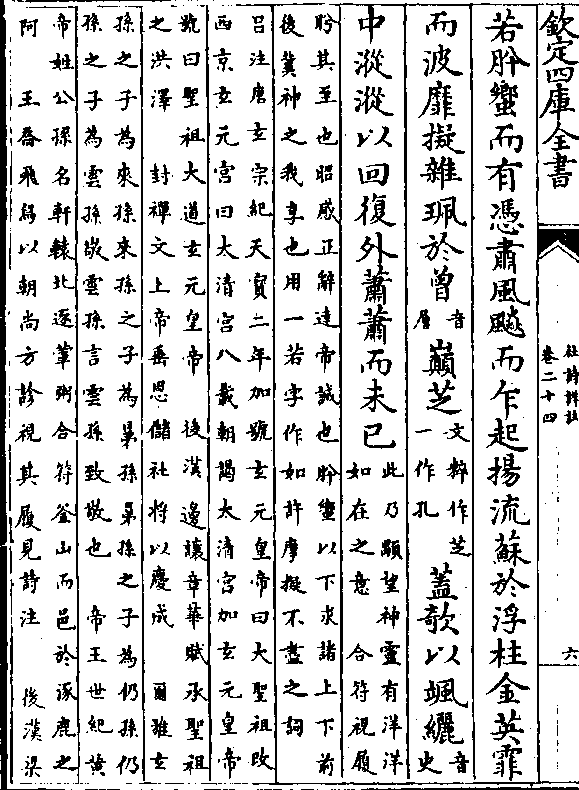 欽定四庫全書
杜詩詳註
卷二十四
六
若肸蠁而有憑肅風飈而乍起揚流蘇於浮柱金英霏
而波靡擬雜珮於曾音層巔芝文粹作芝一作孔蓋欹以颯纚音史
中漎漎以回復外蕭蕭而未已此乃顒望神靈有洋洋如在之意 合符視履
肸其至也昭感正辭達帝誠也肸蠁以下求諸上下前
後冀神之我享也用一若字作如許摩擬不盡之詞
呂注唐玄宗紀天寶二年加號玄元皇帝曰大聖祖改
西京玄元宮曰太清宮八載朝謁太清宮加玄元皇帝
號曰聖祖大道玄元皇帝 後漢邊讓章華賦承聖祖
之洪澤 封禪文上帝垂恩儲祉將以慶成 爾雅玄
孫之子為來孫來孫之子為晜孫晜孫之子為仍孫仍
孫之子為雲孫敬雲孫言雲孫致敬也 帝王世紀黃
帝姓公孫名軒轅北逐葷粥合符釜山而邑於涿鹿之
阿 王喬飛舄以朝尚方診視其履見詩注 後漢梁